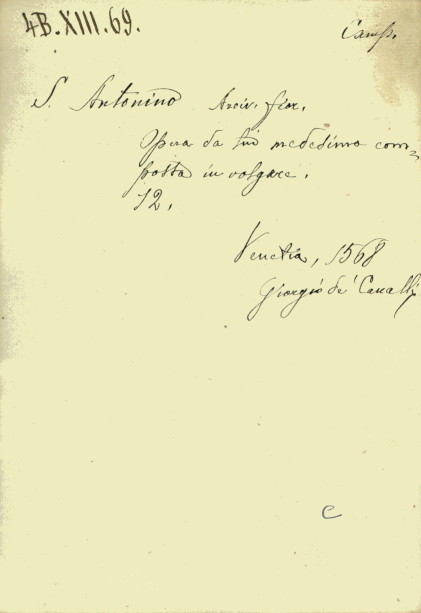 4B.XIII.69.
Camp.
S. Antonino Arciv. fior.
Opera da lui medesimo com=
posta in volgare.
12.
Venetia, 1568
Giorgio de' Caualli
e